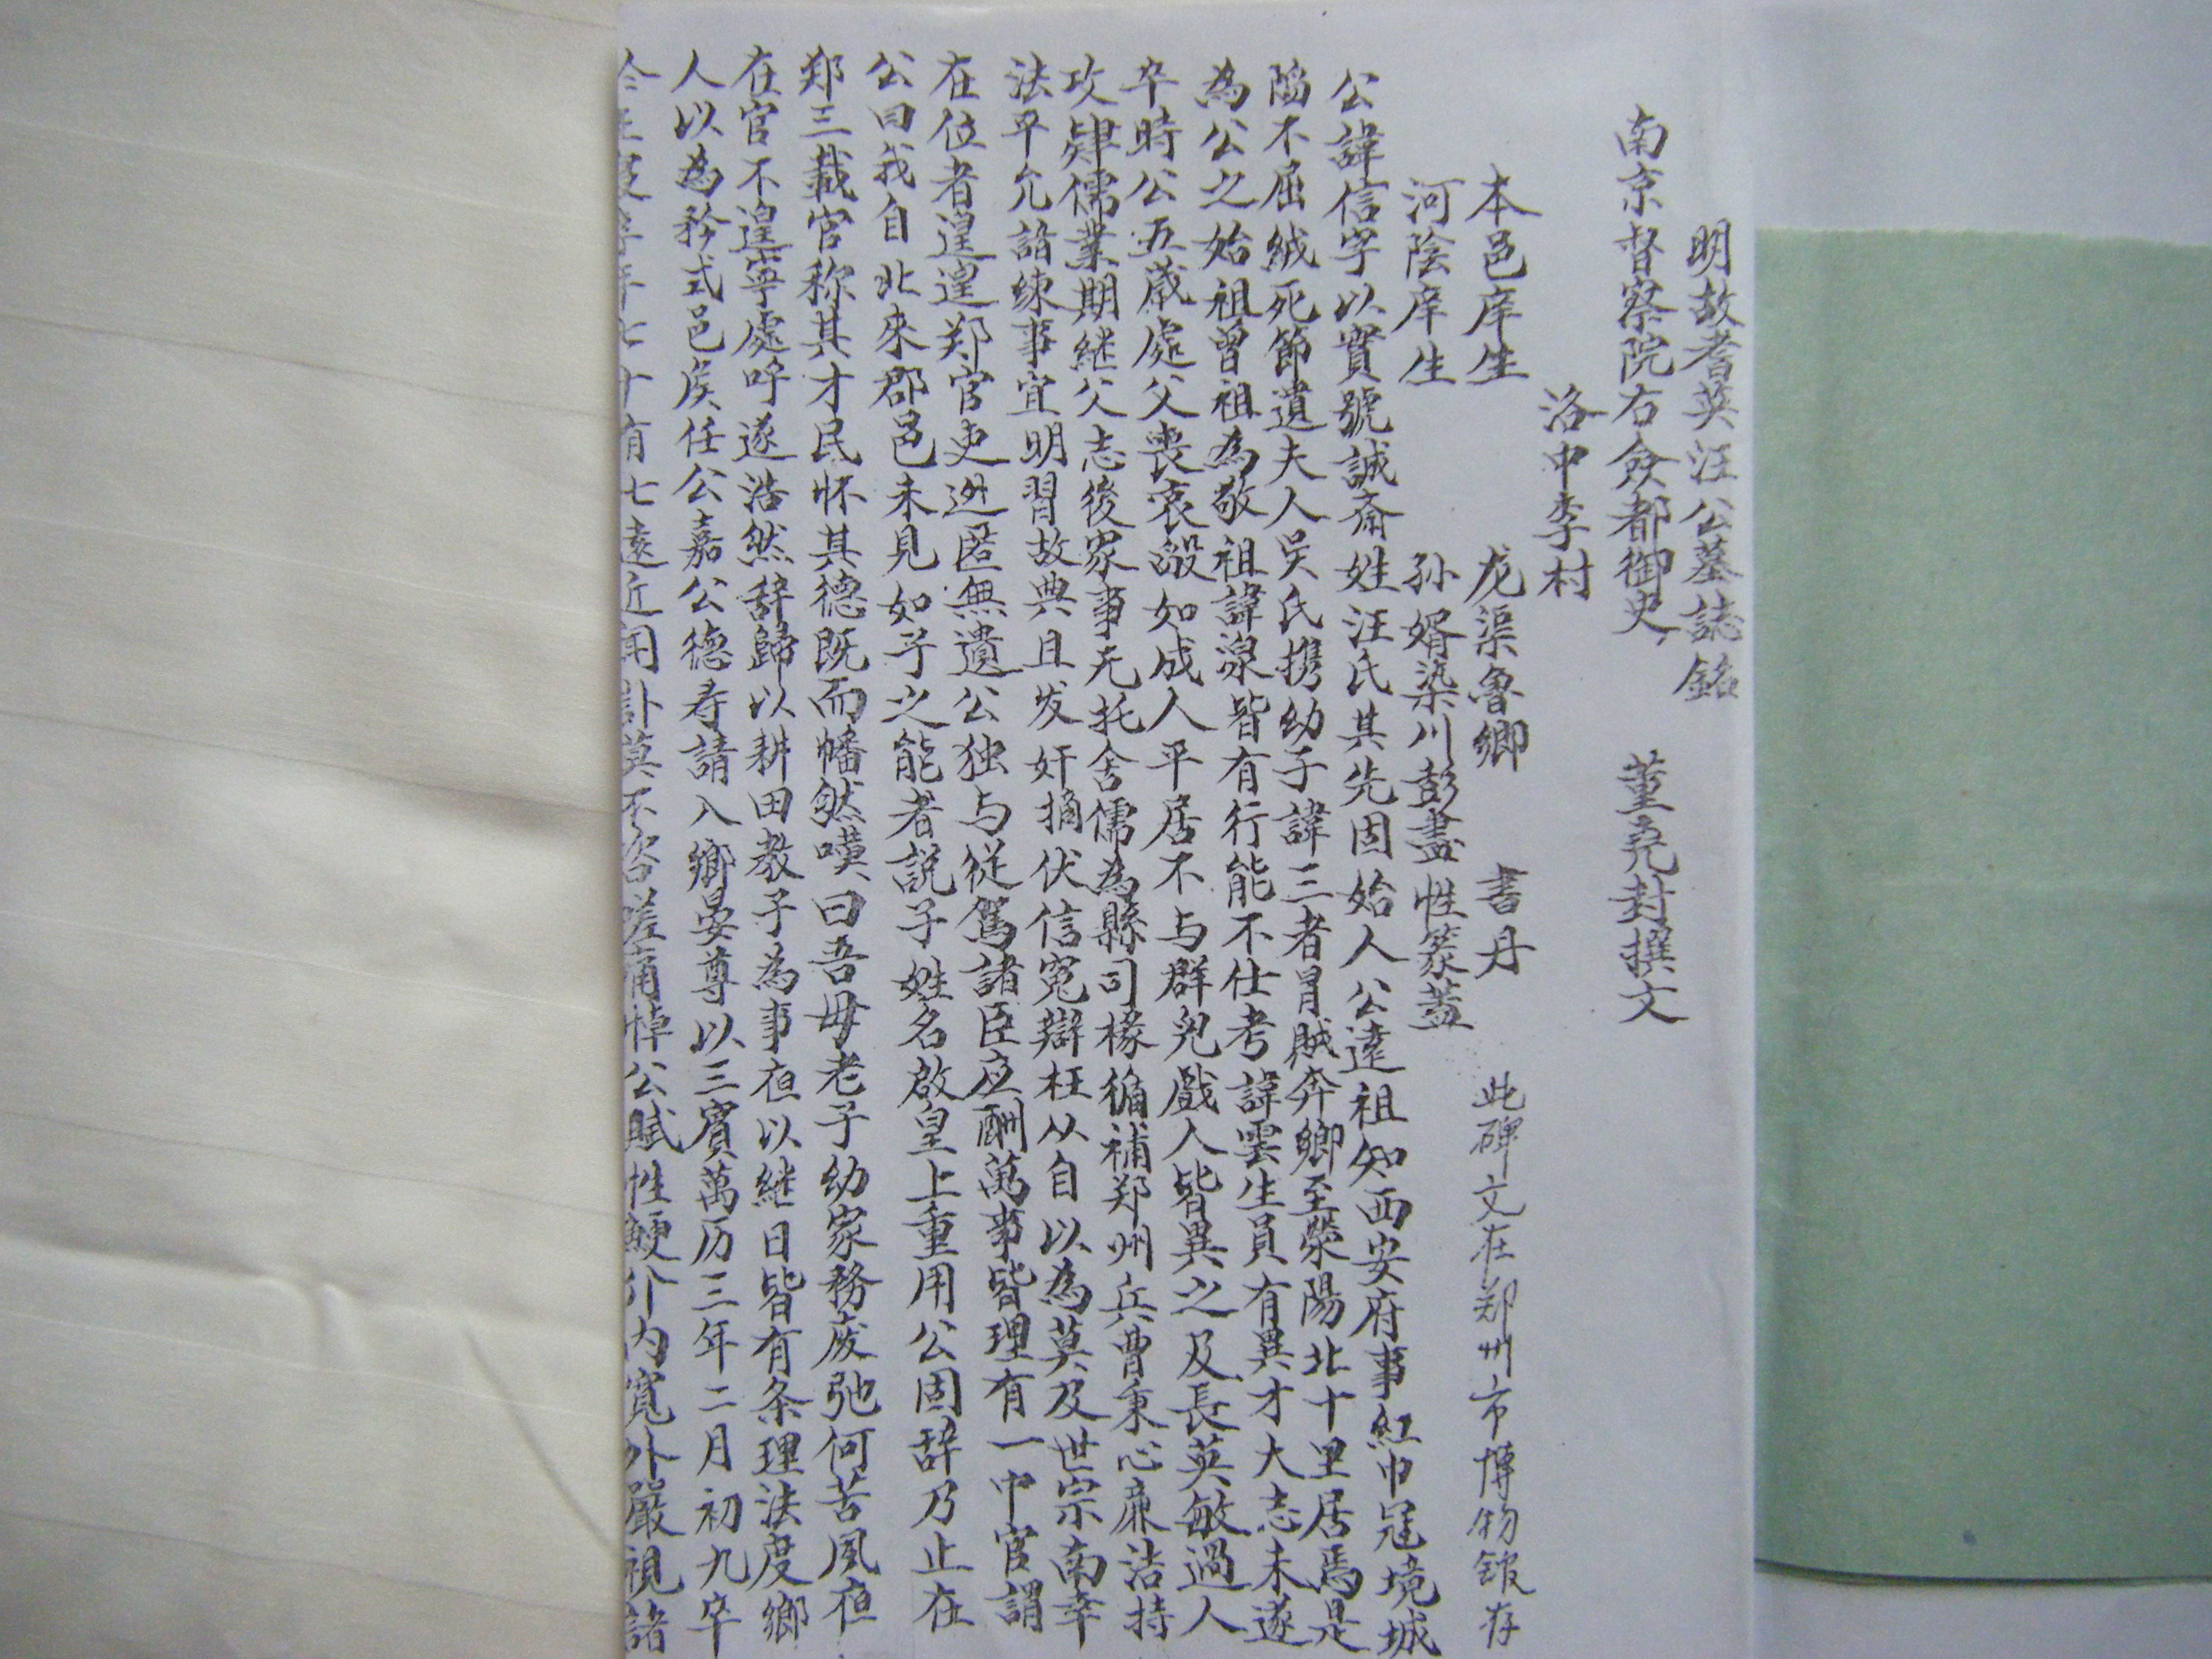 明故耆英汪公墓誌銘
南京督察院右僉都御史 董堯封撰文
洛中李村
本邑庠生 龙渠魯鄉 書丹 此碑文在郑州市博物馆存
河陰庠生 孙婿染川彭盡性篆蓋
公諱信字以實號誠斎姓汪氏其先固始人公遠祖知西安府事紅巾冦境城
陷不屈絨死節遺夫人吴氏携幼子諱三者冐賊奔鄉至滎陽北十里居焉是
為公之始祖曾祖為敬祖諱湶皆有行能不仕考諱雲生員有異才大志未遂
卒時公五歲處父喪哀毁如成人平居不与群兒戲人皆異之及長英敏過人
攻肄儒業期継父志後家事无托舍儒為縣司椽循補郑州兵曹秉心廉洁持
法平允諳练事宜明習故典且发奸摘伏信寃辯枉从自以為莫及世宗南幸
在位者遑遑郑官吏迯匿無遺公独与従駕諸臣应酬萬事皆理有一中官謂
公曰我自北來郡邑未見如子之能者説子姓名啟皇上重用公固辞乃止在
郑三載官称其才民怀其德既而幡然嘆曰吾毋老子幼家務废弛何苦夙夜
在官不遑寧處呼遂浩然辞歸以耕田教子為事夜以継日皆有条理法度鄉
人以為矜式邑矦任公嘉公德寿請入鄉晏尊以三賓萬历三年二月初九卒
七十有七遠近闻訃莫不咨嗟痛悼公賦性鯁介内寬外嚴視諸